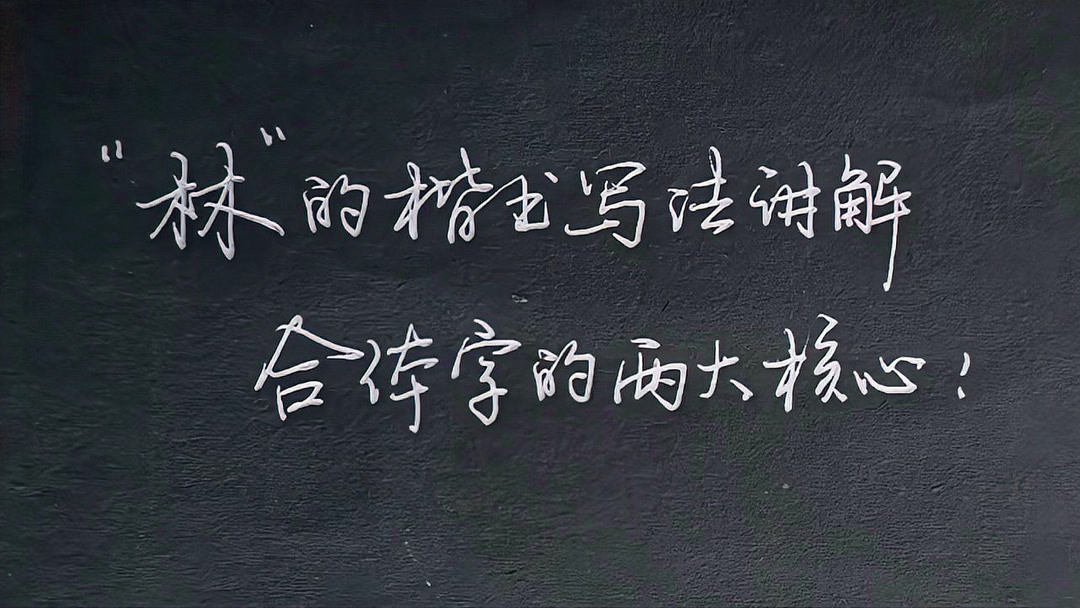 “林”的楷书写法讲解
合体字的两大核心！